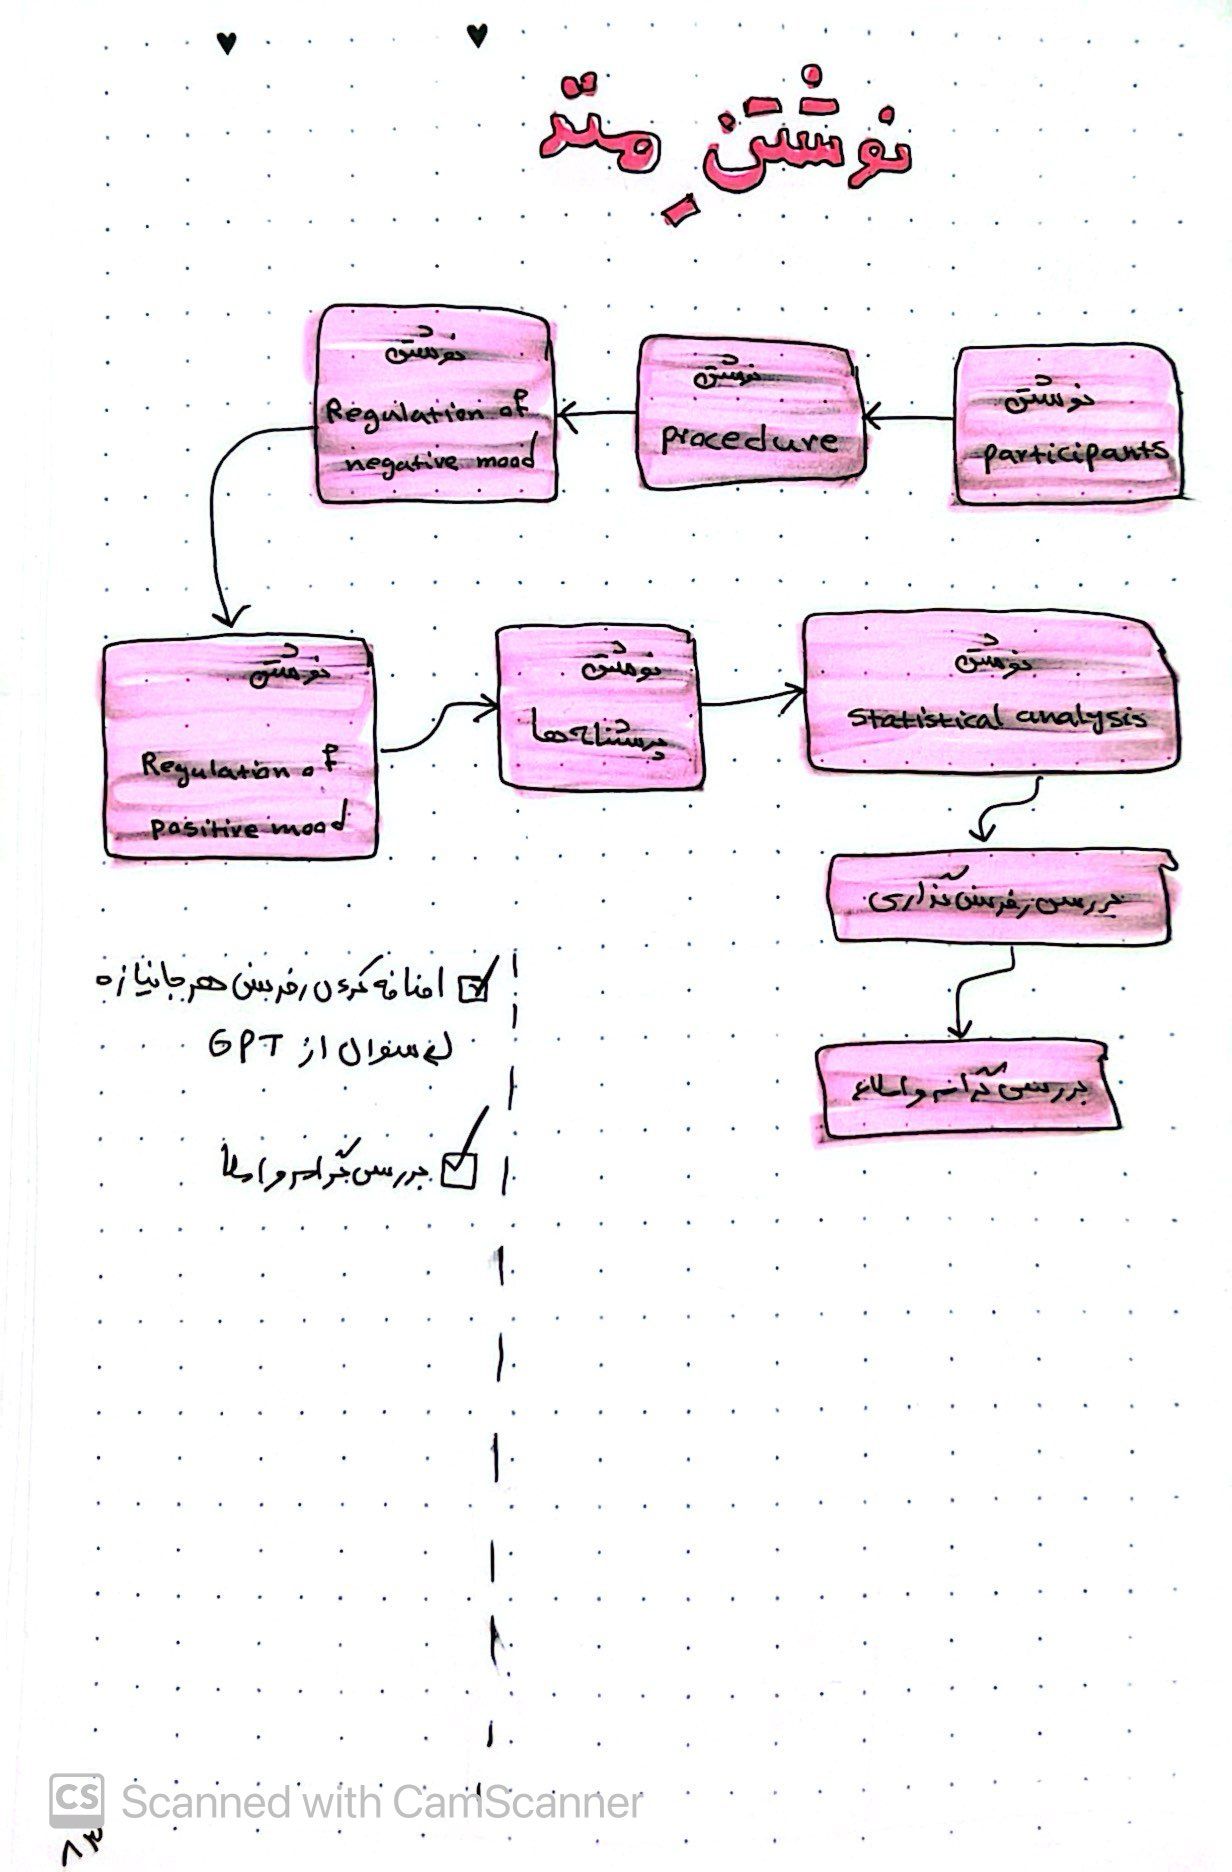 نوشتن متد
نوشتن
participants
نوشتن
procedure
نوشتن
Regulation of
negative mood
نوشتن
Regulation of
positive mood
نوشتن
پرسشنامه ها
نوشتن
Statistical analysis
بررسی رفرنس گذاری
بررسی گرامر و املاء
اضافه کردن رفرنس هر جا نیازه
سوال از GPT
بررسی گرامر و املا
CS Scanned with CamScanner
۸۳